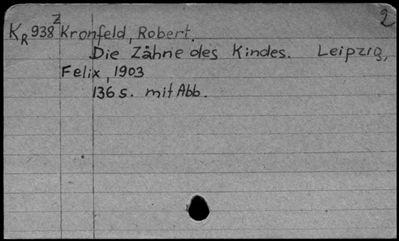 Z 2
KR 938 Kronfeld, Robert.
Die Zähne des Kindes. Leipzig,
Felix, 1903
136 s. mit Abb.